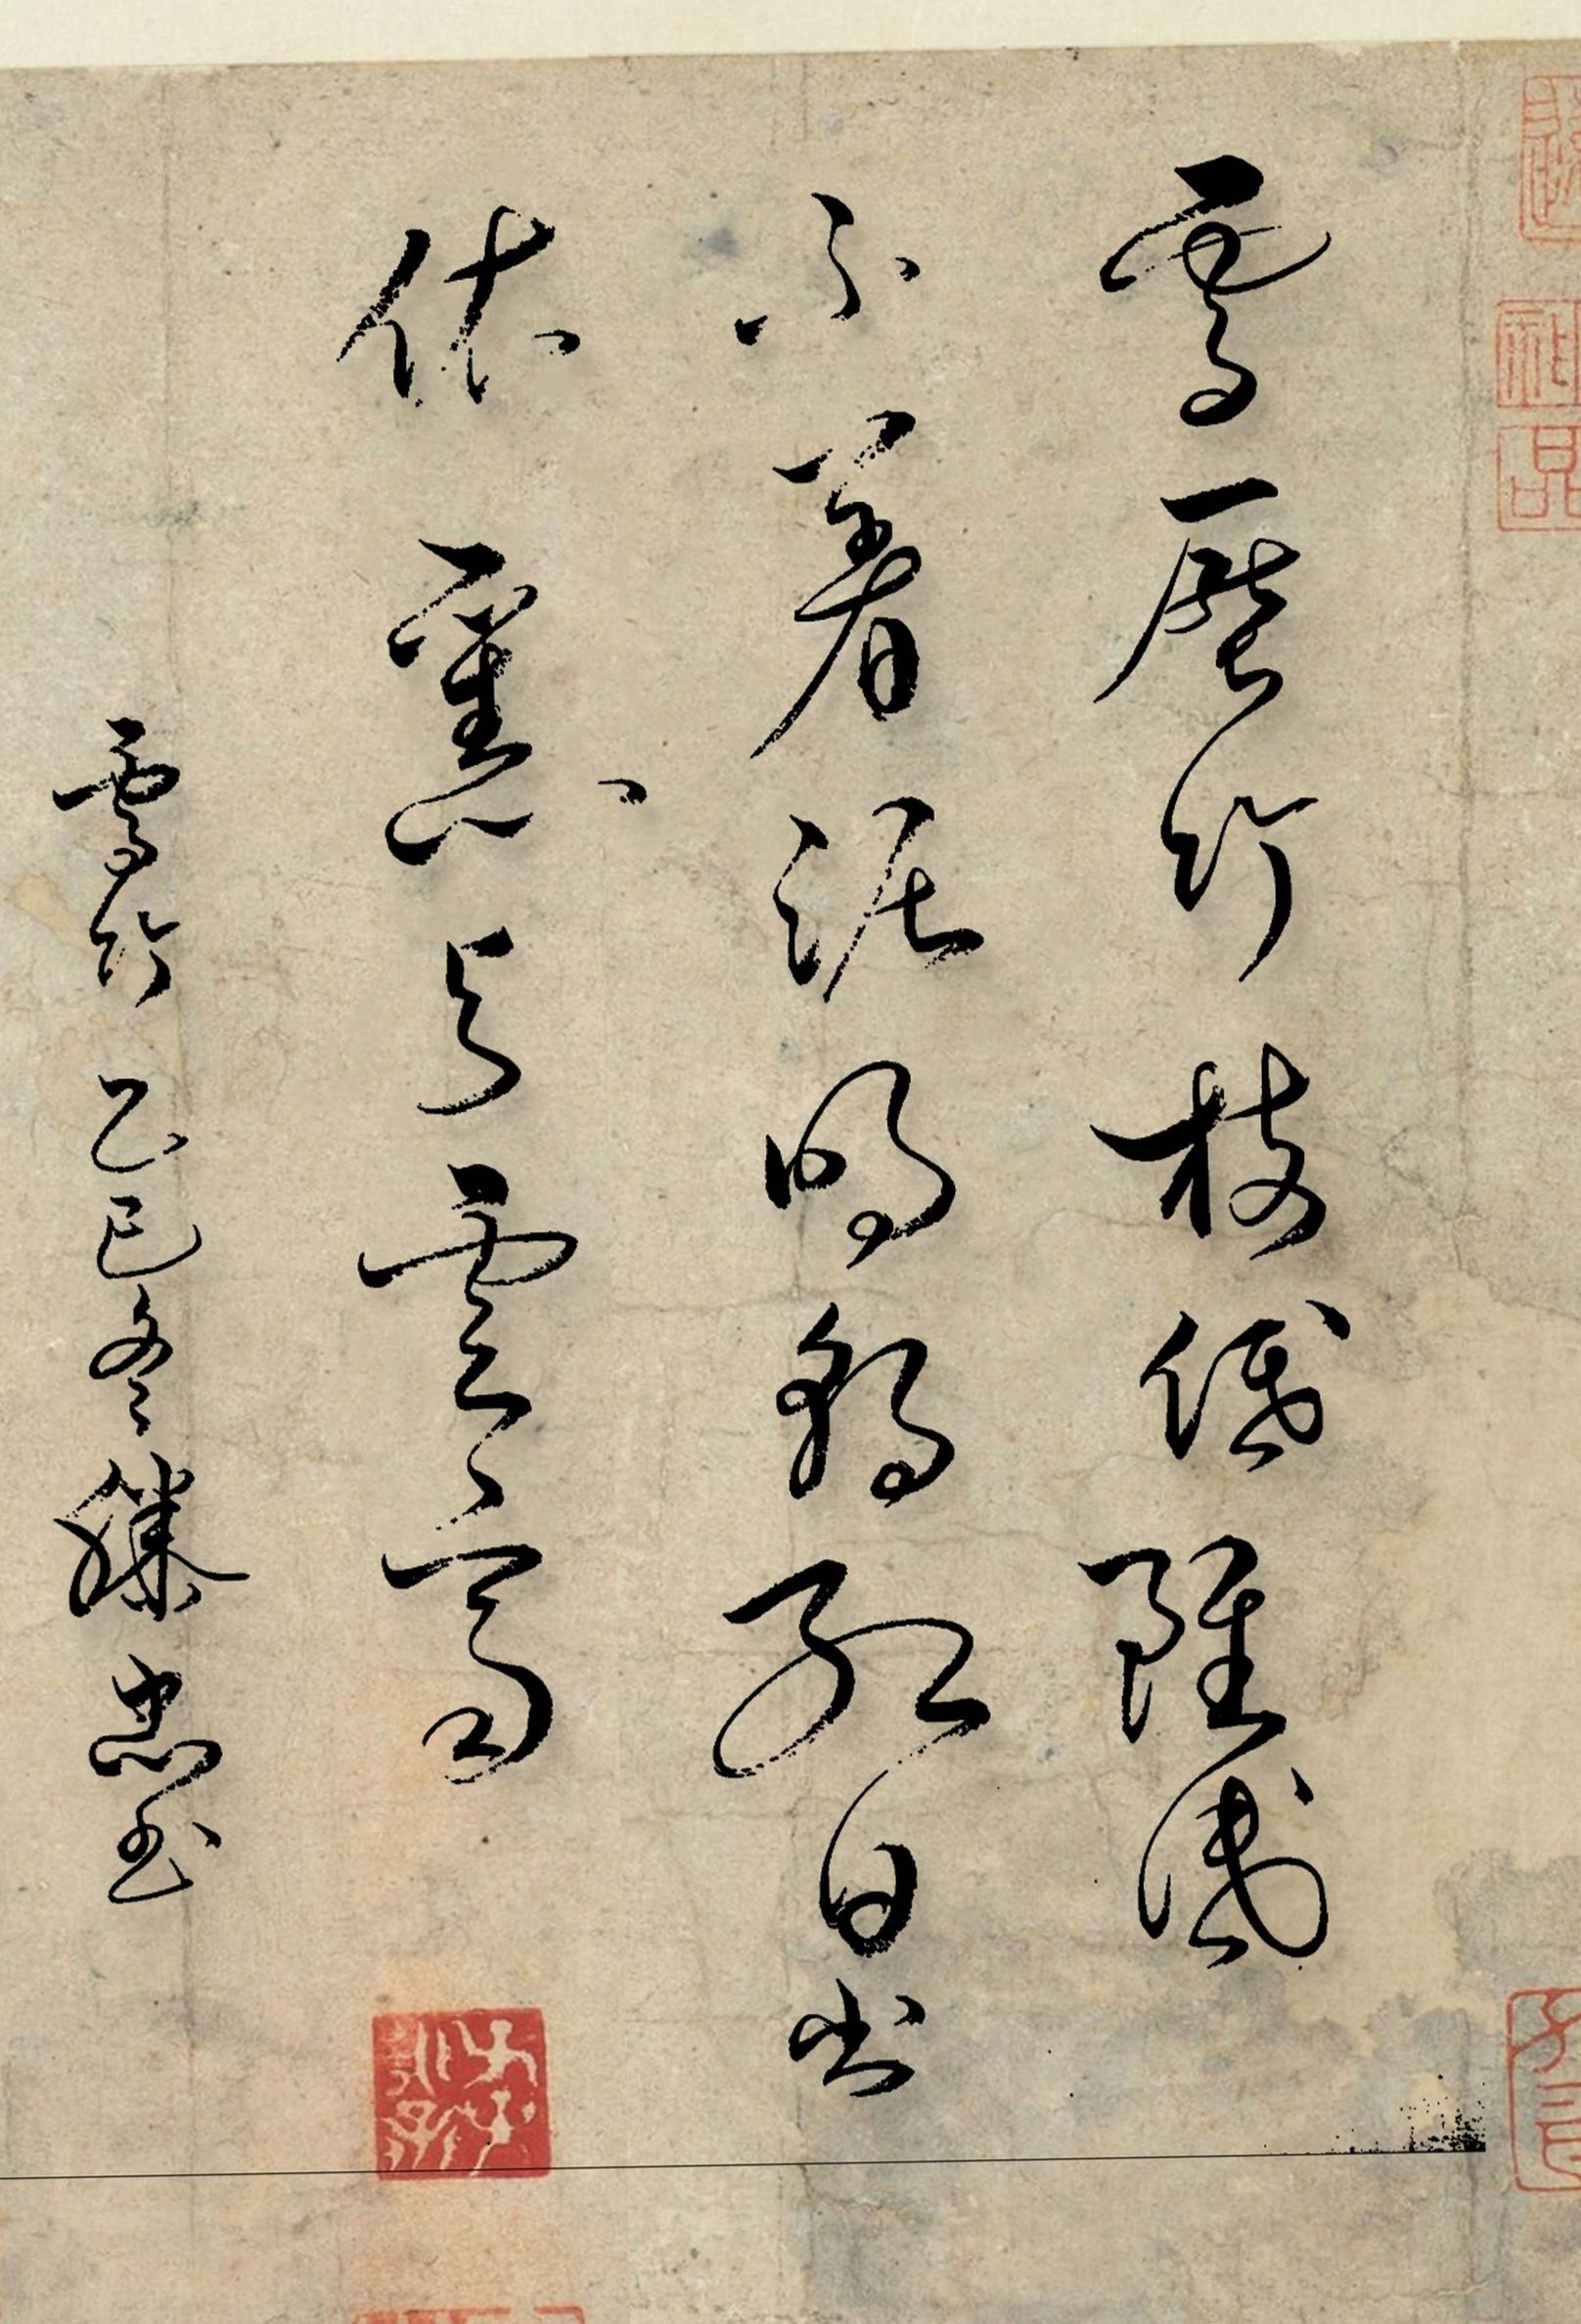 雪壓竹枝低雖低
不着泥明朝紅日出
依舊與雲齊
雪竹 乙巳冬 滕忠玉